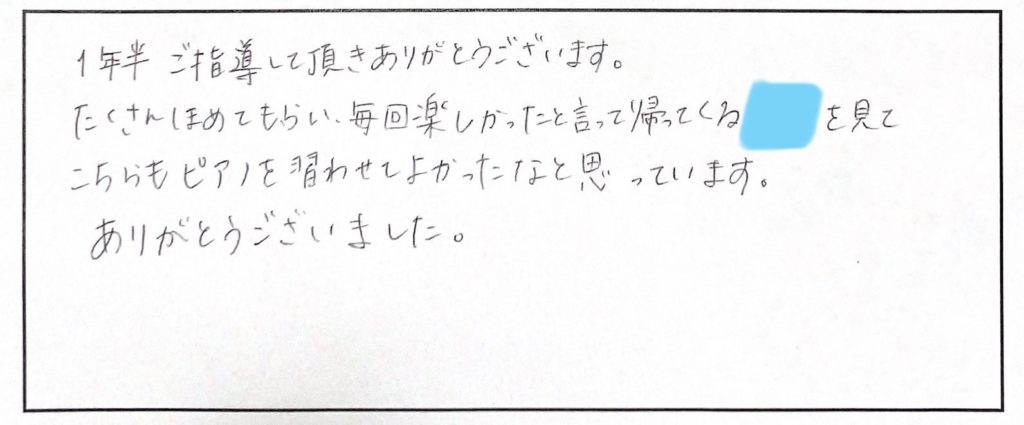 1年半 ご指導して頂きありがとうございます。
たくさんほめてもらい、毎回楽しかったと言って帰ってくる を見て
こちらもピアノを習わせてよかったなと思っています。
ありがとうございました。